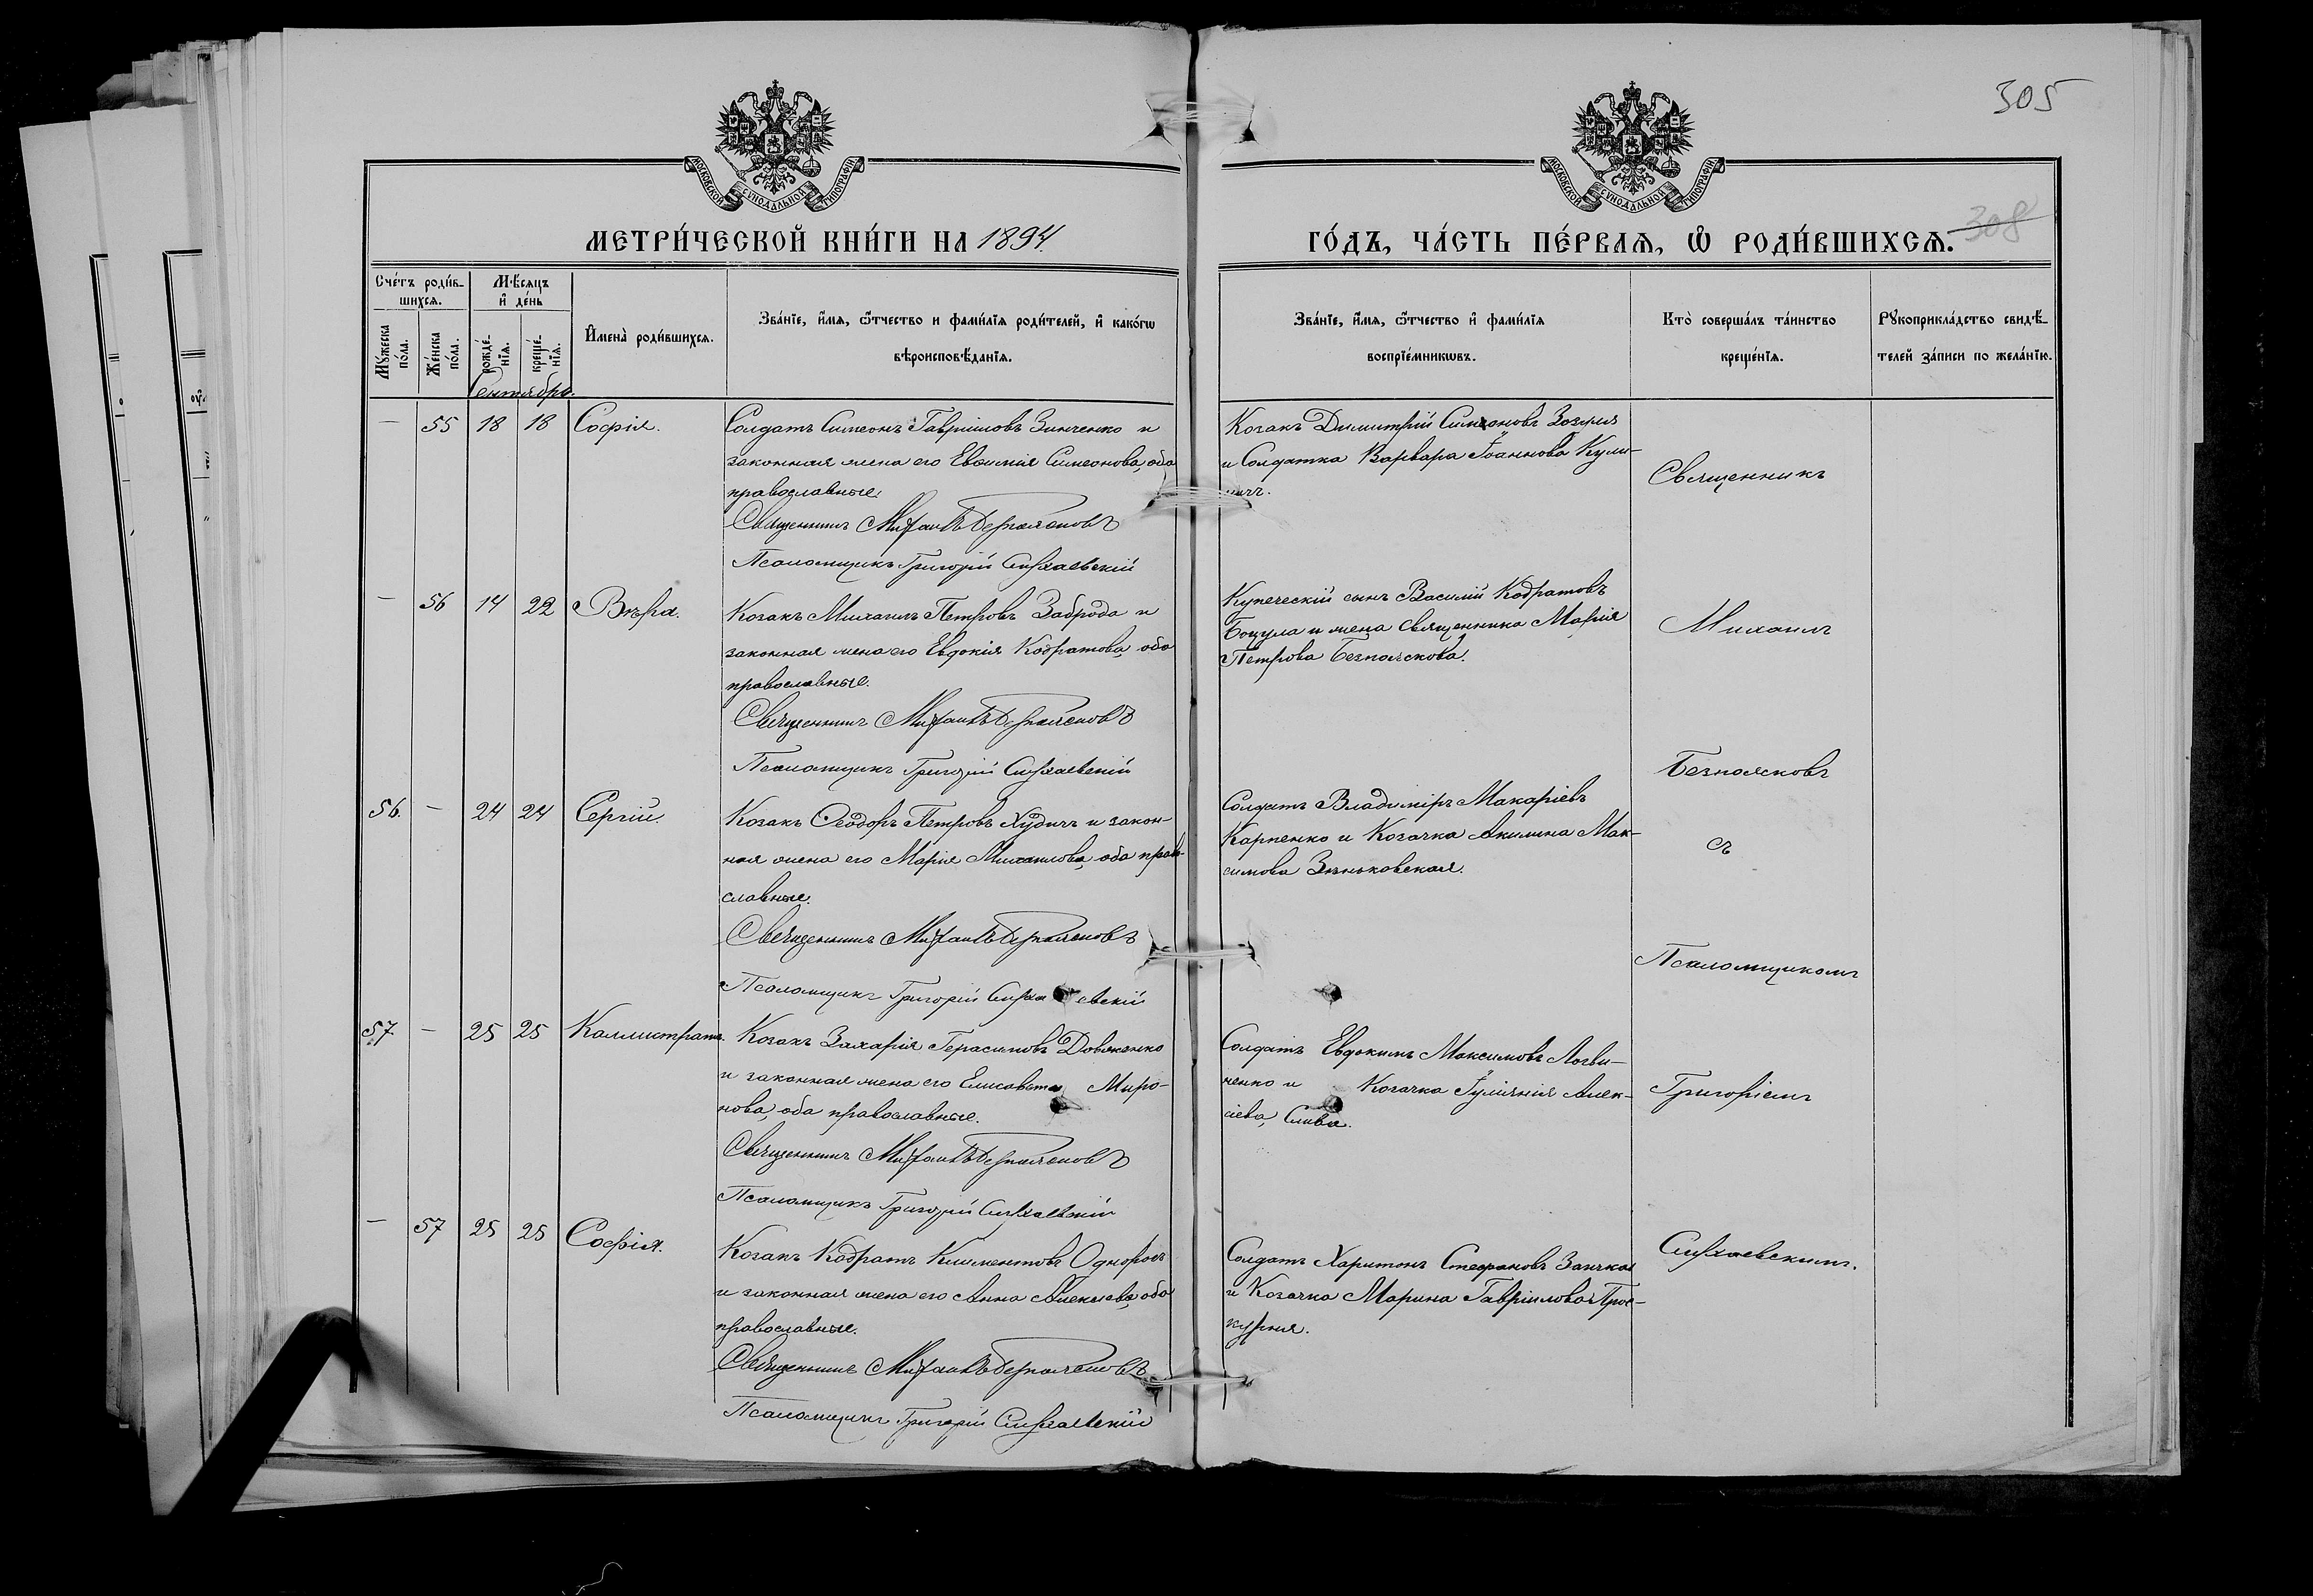 305
МОСКОВСКОЙ СУНОДАЛЬНОЙ ТИПОГРАФІИ
МОСКОВСКОЙ СУНОДАЛЬНОЙ ТИПОГРАФІИ
МЕТРИ́ЧЕСКОЙ КНИ́ГИ НА 1894.
ГО́ДЪ, ЧА́СТЬ ПЕ́РВАЯ, Ѡ҆ РОДИ́ВШИХСЯ.
308
Сче́тъ роди́в-
шихся.
Мѣ́сяцъ
и҆ де́нь
Мꙋ́жеска по́ла.
Же́нска по́ла.
рожде́-нїя.
креще́-нїя.
И҆мена̀ роди́вшихся.
Зва́нїе, и҆́мя, ѻ҆́тчество и фами́лїя роди́телей, и҆ како́гѡ
вѣроисповѣ́данїя.
Зва́нїе, и҆́мя, ѻ҆́тчество и҆ фами́лїя
воспрїе́мникѡвъ.
Кто̀ соверша́лъ та́инство
креще́нїя.
Рꙋкоприкла́дство свидѣ́-
телей за́писи по жела́нїю.
Сентябрь.
— 55 18 18 Софія.
Солдатъ Симеонъ Гавріиловъ Зинченко и
законная жена его Евѳимія Симеонова, оба
православные.
Священникъ Михаилъ Безпоясковъ
Псаломщикъ Григорій
Козакъ Димитрій Симеоновъ
и Солдатка Варвара Іоаннова Кули-
Священникъ
— 56 14 22 Вѣра.
Козакъ Михаилъ Петровъ Заброда и
законная жена его Евдокія Кодратова, оба
православные.
Священникъ Михаилъ Безпоясковъ
Псаломщикъ Григорій
Купеческій сынъ Василій Кодратовъ
Боцула и жена священника Марія
Петрова Безпояскова.
Михаилъ
Безпоясковъ
56. — 24 24 Сергій.
Козакъ Ѳеодоръ Петровъ Худичъ и закон-
ная жена его Марія Михаилова, оба право-
славные.
Священникъ Михаилъ Безпоясковъ
Псаломщикъ Григорій
Солдатъ Владиміръ Макаріевъ
Карпенко и Козачка Акилина Мак-
симова Зѣньковская.
съ
Псаломщикомъ
57 — 25 25 Каллистратъ.
Козакъ Захарія Герасимовъ Довженко
и законная жена его Елисавета Миро-
нова, оба православные.
Священникъ Михаилъ Безпоясковъ
Псаломщикъ Григорій
Солдатъ Евдокимъ Максимовъ Логви-
ненко и Козачка Іуліянія Алек-
сіева, Слива.
Григоріемъ
— 57 25 25 Софія.
Козакъ Кодратъ Климентовъ Однорогъ
и законная жена его Анна Алексіева, оба
православные.
Священникъ Михаилъ Безпоясковъ
Псаломщикъ Григорій
Солдатъ Харитонъ Стефановъ
и Козачка Марина Гавріилова Прос-
курня.